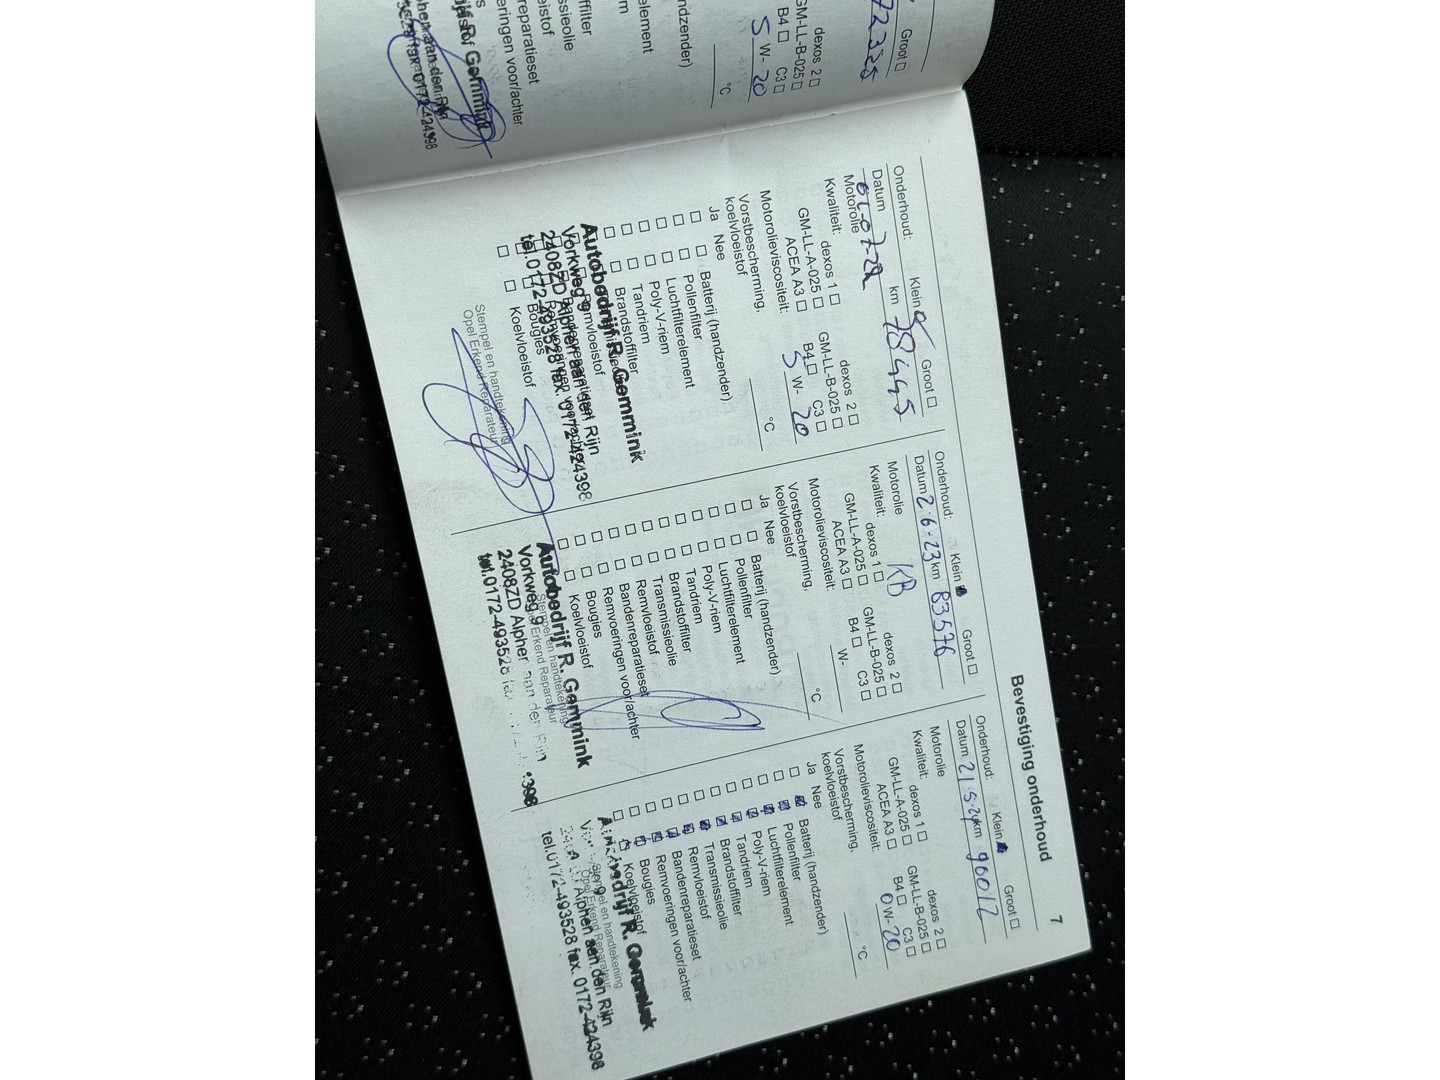 Groot
72335
dexos 2
GM-LL-B-025
B4 C3
5 W- 20
°C
ndzender)
element
ffilter
ssieolie
loeistof
reparatieset
eringen voor/achter
R. Gemmink
hen aan den Rijn
fax. 0172-424398
Onderhoud: Klein Groot
Datum 01-07-22 km 78445
Motorolie
Kwaliteit: dexos 1 dexos 2
GM-LL-A-025 GM-LL-B-025
ACEA A3 B4 C3
Motorolieviscositeit: 5 W- 20
Vorstbescherming,
koelvloeistof °C
Ja Nee
Batterij (handzender)
Pollenfilter
Luchtfilterelement
Poly-V-riem
Tandriem
Brandstoffilter
Remvloeistof
Remvoeringen voor/achter
Bougies
Koelvloeistof
Autobedrijf R. Gemmink
Vorkweg 9
2408ZD Alphen aan den Rijn
tel.0172-493528 fax. 0172-424398
Stempel en handtekening
Opel Erkend Reparateur
Onderhoud: Klein Groot
Datum 2-6-23 km 83576
Motorolie KB
Kwaliteit: dexos 1 dexos 2
GM-LL-A-025 GM-LL-B-025
ACEA A3 B4 C3
Motorolieviscositeit: W-
Vorstbescherming,
koelvloeistof °C
Ja Nee
Batterij (handzender)
Pollenfilter
Luchtfilterelement
Poly-V-riem
Tandriem
Brandstoffilter
Transmissieolie
Remvloeistof
Bandenreparatieset
Remvoeringen voor/achter
Bougies
Koelvloeistof
Stempel en handtekening
Opel Erkend Reparateur
Autobedrijf R. Gemmink
Vorkweg 9
2408ZD Alphen aan den Rijn
tel.0172-493528 398
Bevestiging onderhoud 7
Onderhoud: Klein Groot
Datum 21-5-24 km 90012
Motorolie
Kwaliteit: dexos 1 dexos 2
GM-LL-A-025 GM-LL-B-025
ACEA A3 B4 C3
Motorolieviscositeit: 0 W- 20
Vorstbescherming,
koelvloeistof °C
Ja Nee
Batterij (handzender)
Pollenfilter
Luchtfilterelement
Poly-V-riem
Tandriem
Brandstoffilter
Transmissieolie
Remvloeistof
Bandenreparatieset
Remvoeringen voor/achter
Bougies
Koelvloeistof
Stempel en handtekening
Opel Erkend Reparateur
Autobedrijf R. Gemmink
Alphen aan den Rijn
tel.0172-493528 fax. 0172-424398